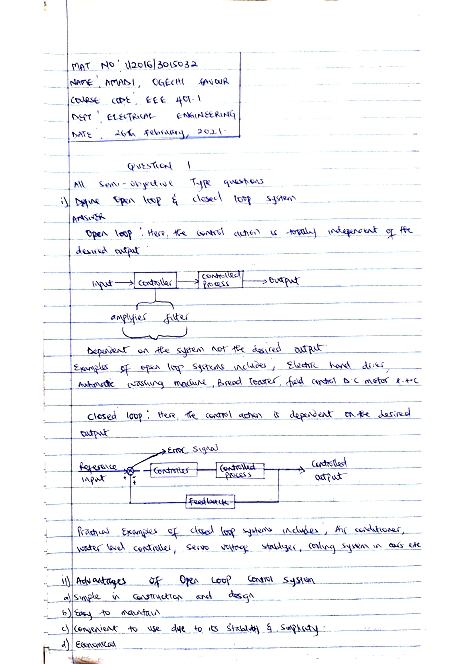 MAT NO: U2016/3015032
NAME: AMADI, OGECHI FAVOUR
COURSE CODE: EEE 401.1
DEPT: ELECTRICAL ENGINEERING
DATE: 26th February, 2021.
QUESTION 1
All Semi-objective Type questions
i) Define Open loop & closed loop system
Answer
Open loop: Here, the control action is totally independent of the
desired output.
Input → Controller → Controlled Process → Output
amplifier filter
Dependent on the system not the desired output.
Examples of open loop systems includes, Electric hand drier,
Automatic washing machine, Bread toaster, field control D.C motor e.t.c
Closed loop: Here, the control action is dependent on the desired
output
Error Signal
Reference Input
Controller
Controlled process
Controlled output
Feedback
Practical Examples of closed loop systems includes, Air conditioner,
water level controller, Servo voltage stabilizer, cooling system in cars etc
ii) Advantages of Open Loop Control System
a) Simple in construction and design
b) Easy to maintain
c) Convenient to use due to its Stability & Simplicity.
d) Economical